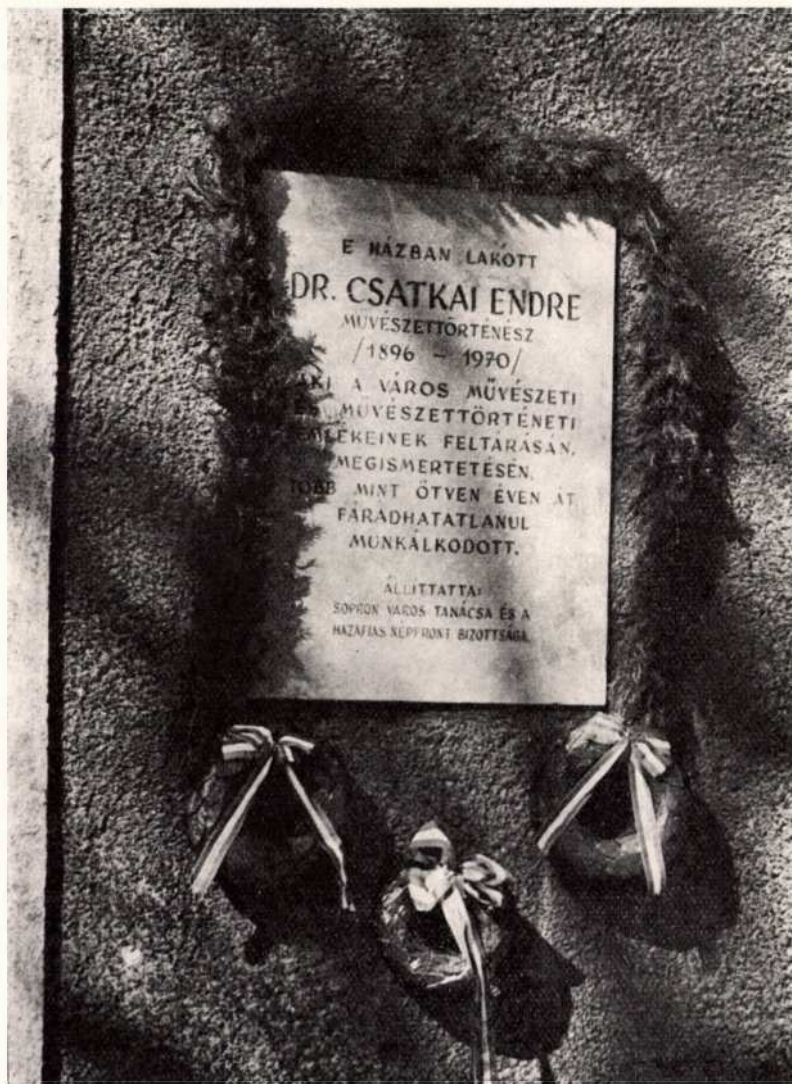 E HÁZBAN LAKOTT
DR. CSATKAI ENDRE
MŰVÉSZETTÖRTÉNÉSZ
/1896 – 1970/
AKI A VÁROS MŰVÉSZETI
ÉS MŰVÉSZETTÖRTÉNETI
EMLÉKEINEK FELTÁRÁSÁN,
MEGISMERTETÉSÉN,
TÖBB MINT ÖTVEN ÉVEN ÁT
FÁRADHATATLANUL
MUNKÁLKODOTT.
ÁLLITTATTA:
SOPRON VÁROS TANÁCSA ÉS A
HAZAFIAS NÉPFRONT BIZOTTSÁGA